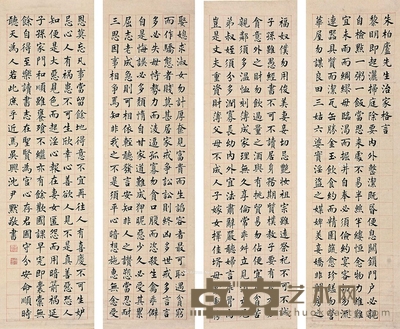 朱柏廬先生治家格言
黎明即起灑掃庭除要內外整潔既昏便息關鎖門戶必親
自檢點一粥一飯當思來處不易半絲半縷恆念物力維艱
宜未雨而綢繆毋臨渴而掘井自奉必須儉約宴客切勿留
連器具質而潔瓦缶勝金玉飲食約而精園蔬愈珍饈勿營
華屋勿謀良田三姑六婆實淫盜之媒婢美妾嬌非閨房之
福奴僕勿用俊美妻妾切忌艷妝祖宗雖遠祭祀不可不誠
子孫雖愚經書不可不讀居身務期質樸教子要有義方勿
貪意外之財勿飲過量之酒與肩挑貿易勿佔便宜見貧苦
親鄰須多溫恤刻薄成家理無久享倫常乖舛立見消亡兄
弟叔姪須分多潤寡長幼內外宜法肅辭嚴聽婦言乖骨肉
豈是丈夫重資財薄父母不成人子嫁女擇佳婿毋索重聘
娶媳求淑女勿計厚奩見富貴而生諂容者最可恥遇貧窮
而作驕態者賤莫甚居家戒爭訟訟則終凶處世戒多言言
多必失毋恃勢力而凌逼孤寡毋貪口腹而恣殺牲禽乖僻
自是悔誤必多頹惰自甘家道難成狎暱惡少久必受其累
屈志老成急則可相依輕聽發言安知非人之譖訴當忍耐
三思因事相爭焉知非我之不是須平心暗想施惠無念受
恩莫忘凡事當留餘地得意不宜再往人有喜慶不可生妒
忌心人有禍患不可生欣幸心善欲人見不是真善惡恐人
知便是大惡見色而起淫心報在妻女匿怨而用暗箭禍延
子孫家門和順雖饔飧不繼亦有餘歡國課早完即囊橐無
餘自得至樂讀書志在聖賢為官心存君國守分安命順時
聽天為人若此庶乎近焉吳興沈尹默敬書